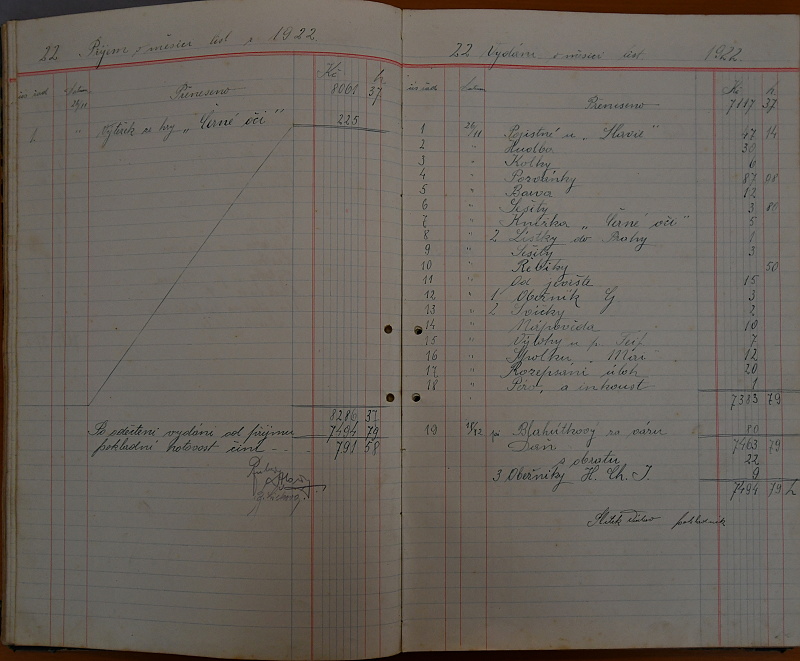 22 Příjem v měsíci list. r. 1922.
Kč h
Datum
Přeneseno 8061 37
26/11
1 " Výtěžek ze hry „Černé oči" 225
8286 37
Po odečtení vydání od příjmu 7494 79
pokladní hotovost činí - - - 791 58
22 Vydání v měsíci list. 1922.
Kč h
Datum
Přeneseno 7117 37
1 26/11 Pojistné u „Slavie" 47 14
2 " Hudba 30
3 " Kolky 6
4 " Pozvánky 87 08
5 " Barva 12
6 " Sešity 3 80
7 " Knížka „Černé oči" 5
8 " 2 Lístky do Prahy 1
9 " Sešity 3
10 " Řebíky 50
11 " Od jeviště 15
12 " 1 Oběžník G 3
13 " 2 Svíčky 2
14 " Nápověda 10
15 " Výlohy u p. 7
16 " Spolku 12
17 " Rozepsání úloh 20
18 " Péro, a inkoust 1
7383 79
19 Blahútkovy za sáru 80
Daň 7463 79
z obratu 22
3 Oběžníky H. Ch. J. 9
7494 79 h
pokladník